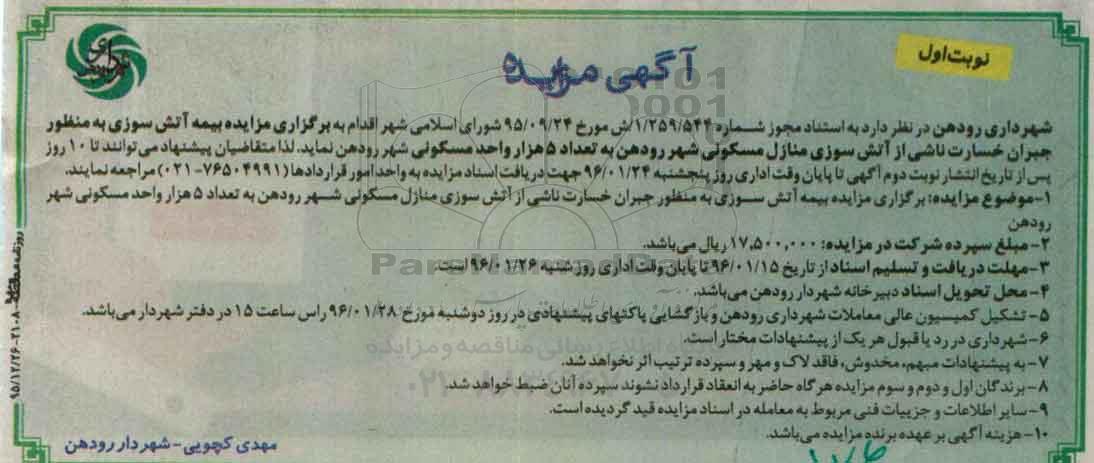 نوبت اول
آگهی مزایده
شهرداری رودهن در نظر دارد به استناد مجوز شماره ۱/۲۵۹/۵۴۴/ش مورخ ۹۵/۰۹/۲۴ شورای اسلامی شهر اقدام به برگزاری مزایده بیمه آتش سوزی به منظور
جبران خسارت ناشی از آتش سوزی منازل مسکونی شهر رودهن به تعداد ۵ هزار واحد مسکونی شهر رودهن نماید. لذا متقاضیان پیشنهاد می توانند تا ۱۰ روز
پس از تاریخ انتشار نوبت دوم آگهی تا پایان وقت اداری روز پنجشنبه ۹۶/۰۱/۲۴ جهت دریافت اسناد مزایده به واحد امور قراردادها (۷۶۵۰۴۹۹۱-۰۲۱) مراجعه نمایند.
۱-موضوع مزایده: برگزاری مزایده بیمه آتش سوزی به منظور جبران خسارت ناشی از آتش سوزی منازل مسکونی شهر رودهن به تعداد ۵ هزار واحد مسکونی شهر
رودهن
۲-مبلغ سپرده شرکت در مزایده: ۱۷,۵۰۰,۰۰۰ ریال می باشد.
۳-مهلت دریافت و تسلیم اسناد از تاریخ ۹۶/۰۱/۱۵ تا پایان وقت اداری روز شنبه ۹۶/۰۱/۲۶ است.
۴-محل تحویل اسناد دبیرخانه شهردار رودهن می باشد.
۵-تشکیل کمیسیون عالی معاملات شهرداری رودهن و بازگشایی پاکتهای پیشنهادی در روز دوشنبه مورخ ۹۶/۰۱/۲۸ راس ساعت ۱۵ در دفتر شهردار می باشد.
۶-شهرداری در رد یا قبول هر یک از پیشنهادات مختار است.
۷-به پیشنهادات مبهم، مخدوش، فاقد لاک و مهر و سپرده ترتیب اثر نخواهد شد.
۸-برندگان اول و دوم و سوم مزایده هرگاه حاضر به انعقاد قرارداد نشوند سپرده آنان ضبط خواهد شد.
۹-سایر اطلاعات و جزییات فنی مربوط به معامله در اسناد مزایده قید گردیده است.
۱۰-هزینه آگهی بر عهده برنده مزایده می باشد.
مهدی کچویی-شهردار رودهن